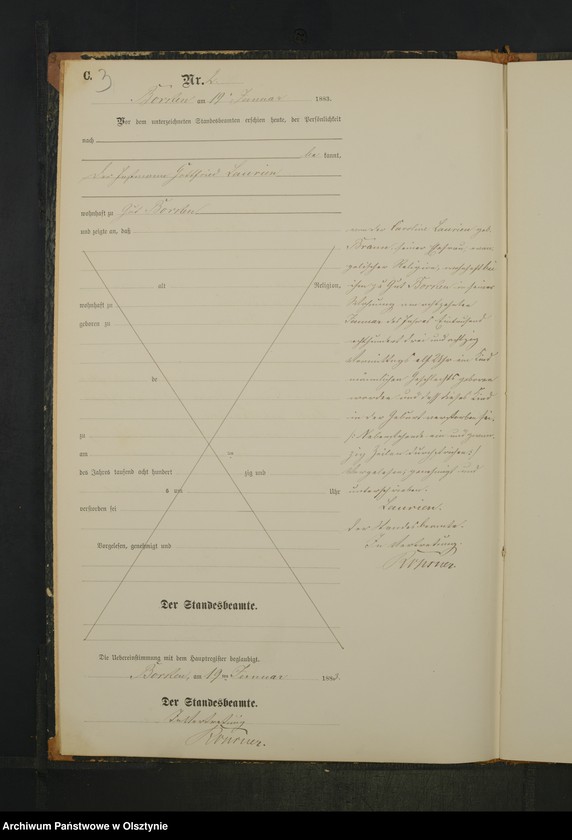 C. 3
Nr. 2.
Borchen am 19. Januar 1883.
Vor dem unterzeichneten Standesbeamten erschien heute, der Persönlichkeit
nach
be kannt,
Gottfried Laurien
wohnhaft zu Gut Borchen
und zeigte an, daß
von der Caroline Laurien geb.
seiner Ehefrau, evan
gelischer Religion, wohnhaft bei
ihm zu Gut Borchen in seiner
Wohnung am achtzehnten
Januar des Jahres Eintausend
achthundert drei und achtzig
Vormittags elf Uhr ein Kind
männlichen Geschlechts geboren
worden und daß dieses Kind
in der Geburt verstorben sei.
Vorstehende ein und zwan
zig Zeilen durchstrichen
Vorgelesen, genehmigt und
unterschrieben.
Laurien.
Der Standesbeamte.
In Vertretung.
alt Religion,
wohnhaft zu
geboren zu
be
zu
am
des Jahres tausend acht hundert zig und
um Uhr
verstorben sei
Vorgelesen, genehmigt und
Der Standesbeamte.
Die Uebereinstimmung mit dem Hauptregister beglaubigt.
Borchen, am 19ten Januar 1883.
Der Standesbeamte.
In Vertretung
Archiwum Państwowe w Olsztynie